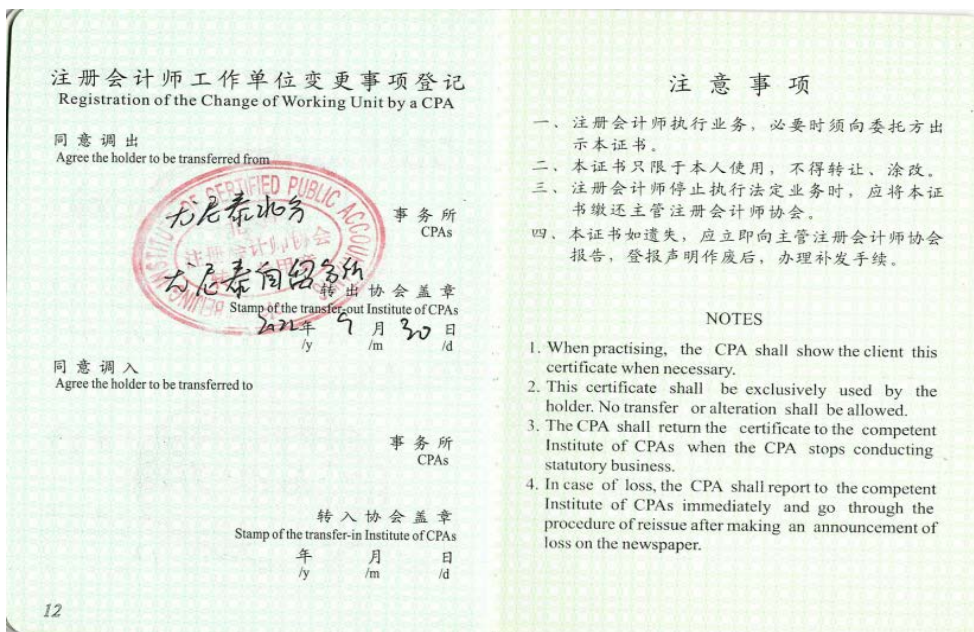 注册会计师工作单位变更事项登记
Registration of the Change of Working Unit by a CPA
同意调出
Agree the holder to be transferred from
事务所
CPAs
转出协会盖章
Stamp of the transfer-out Institute of CPAs
2022年 9月 30日
/y /m /d
同意调入
Agree the holder to be transferred to
事务所
CPAs
转入协会盖章
Stamp of the transfer-in Institute of CPAs
年 月 日
/y /m /d
12
注意事项
一、注册会计师执行业务，必要时须向委托方出
示本证书。
二、本证书只限于本人使用，不得转让、涂改。
三、注册会计师停止执行法定业务时，应将本证
书缴还主管注册会计师协会。
四、本证书如遗失，应立即向主管注册会计师协会
报告，登报声明作废后，办理补发手续。
NOTES
1. When practising, the CPA shall show the client this
certificate when necessary.
2. This certificate shall be exclusively used by the
holder. No transfer or alteration shall be allowed.
3. The CPA shall return the certificate to the competent
Institute of CPAs when the CPA stops conducting
statutory business.
4. In case of loss, the CPA shall report to the competent
Institute of CPAs immediately and go through the
procedure of reissue after making an announcement of
loss on the newspaper.